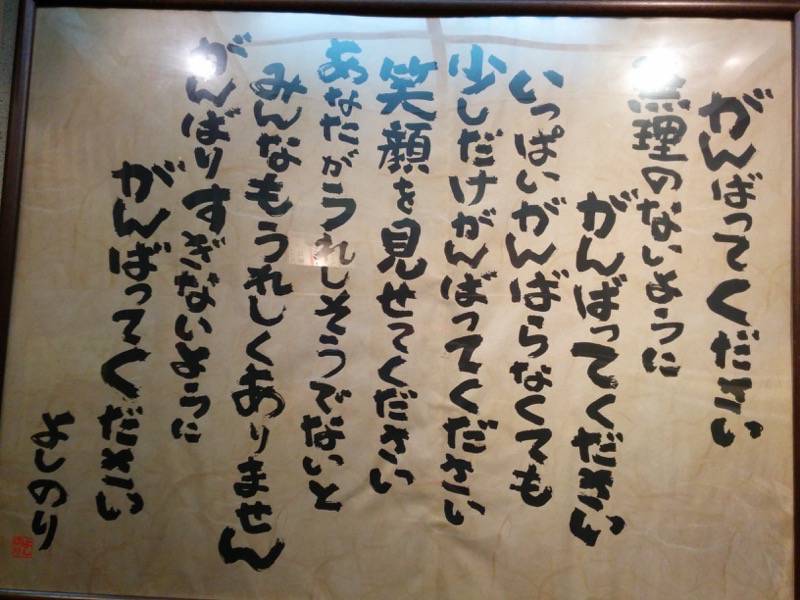 がんばってください
無理のないように
がんばってください
いっぱいがんばらなくても
少しだけがんばってください
笑顔を見せてください
あなたがうれしそうでないと
みんなもうれしくありません
がんばりすぎないように
がんばってください
よしのり